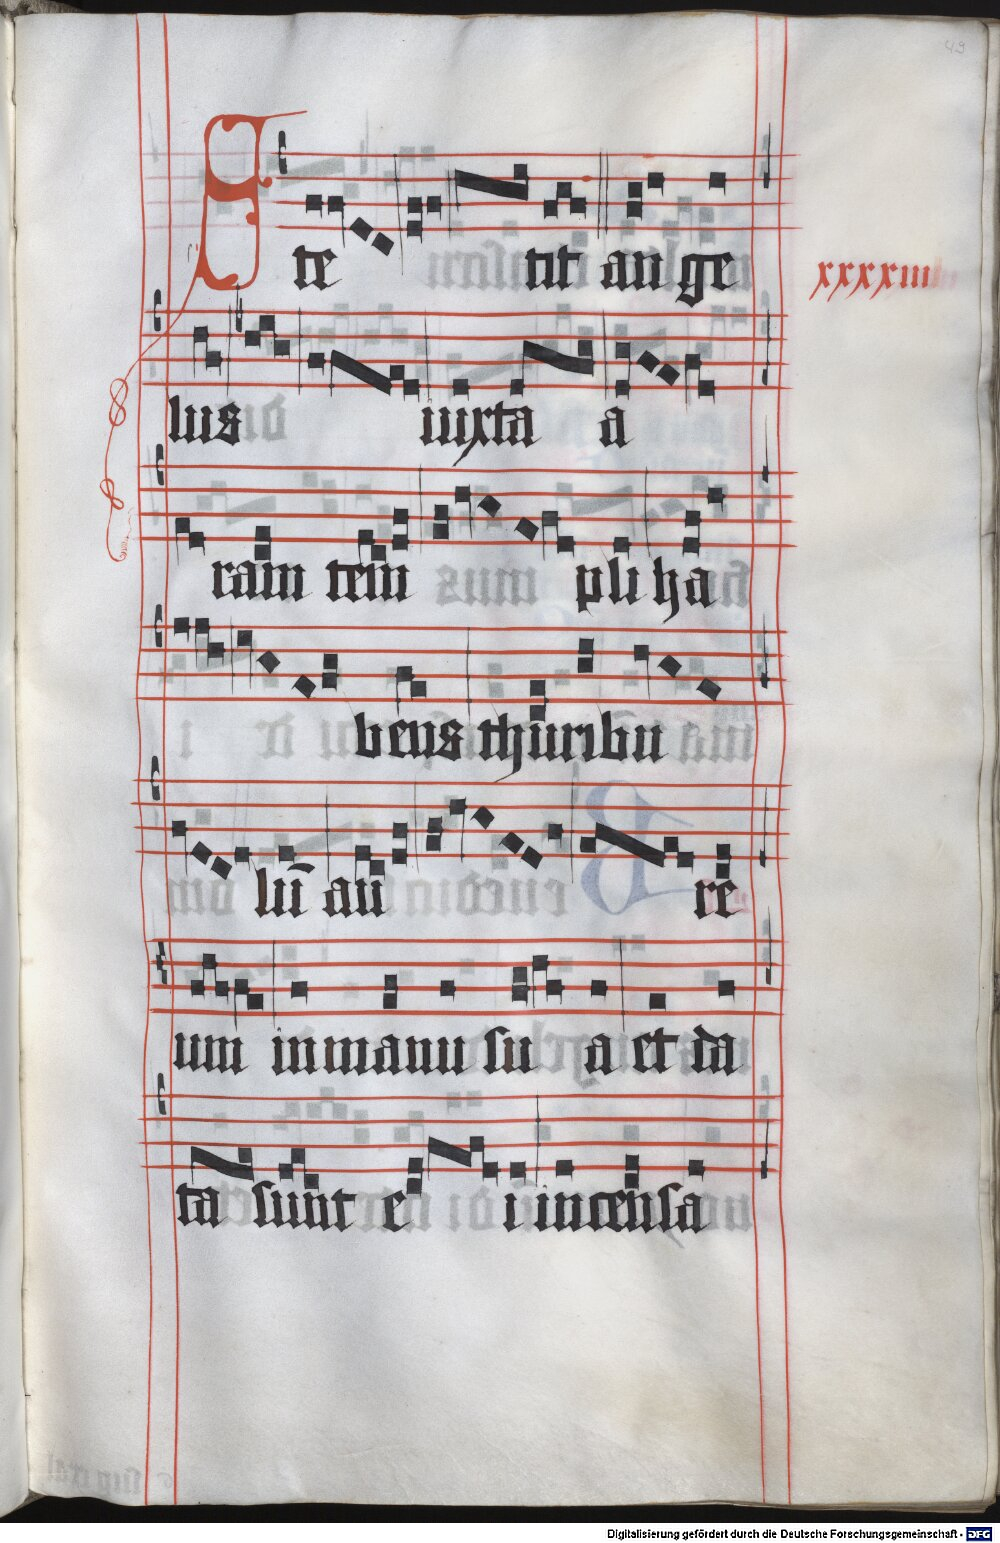 49
Ste tit ange
xxxxiiii
lus iuxta a
ram tem pli ha
bens thuribu
lū au re
um in manu su a et da
ta sunt e i incensa
Digitalisierung gefördert durch die Deutsche Forschungsgemeinschaft - DFG